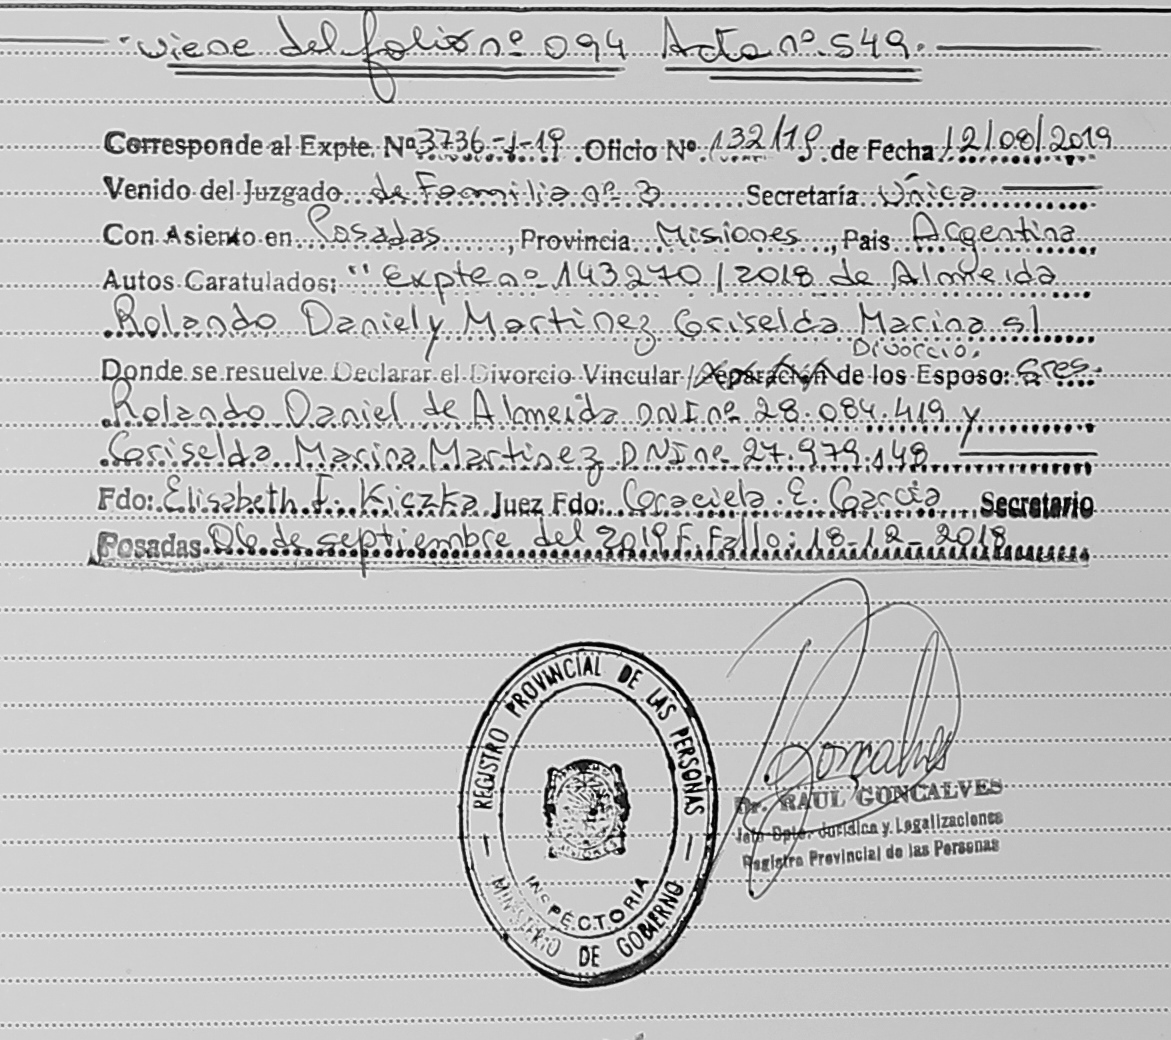 viene del folio nº 094 Acta nº 549.
Corresponde al Expte. Nº 3736-J-19. Oficio Nº 132/19. de Fecha 12/08/2019
Venido del Juzgado de Familia nº 3 Secretaría Única
Con Asiento en Posadas, Provincia Misiones, Pais Argentina
Autos Caratulados: "Expte nº 143270/2018 de Almeida
Rolando Daniel y Martinez Griselda Marina s/
Divorcio.
Donde se resuelve Declarar el Divorcio Vincular / Separación de los Esposo: Sres.
Rolando Daniel de Almeida DNI nº 28.084.419 y
Griselda Marina Martinez DNI nº 27.979.148
Fdo: Elisabeth I. Kiczka Juez Fdo: Graciela E. Garcia Secretario
Posadas 06 de septiembre del 2019 F. Fallo: 18-12-2018
REGISTRO PROVINCIAL DE LAS PERSONAS
INSPECTORIA
MINISTERIO DE GOBIERNO
MISIONES
Goncalves
Dr. RAUL GONCALVES
Jefe Dpto. Jurídica y Legalizaciones
Registro Provincial de las Personas